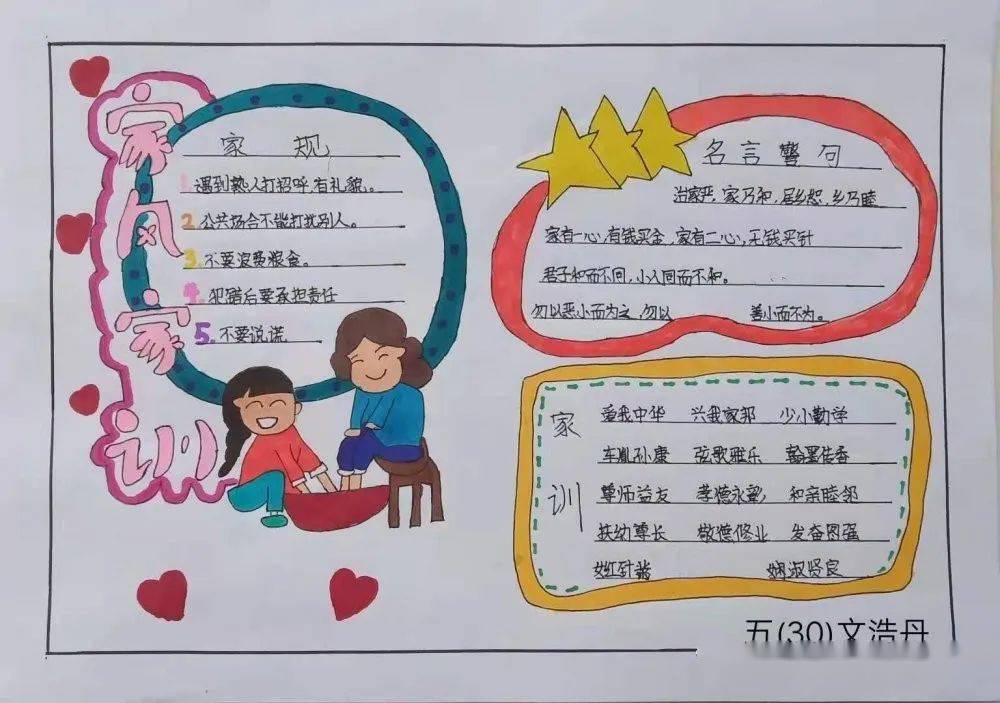 家风家训
家 规
1. 遇到熟人打招呼,有礼貌。
2. 公共场合不能打扰别人。
3. 不要浪费粮食。
4. 犯错后要承担责任
5. 不要说谎
名言警句
治家严,家乃和,居乡恕,乡乃睦
家有一心,有钱买金,家有二心,无钱买针
君子和而不同,小人同而不和。
勿以恶小而为之,勿以 善小而不为。
家训
爱我中华 兴我家邦 少小勤学
车胤孙康 弦歌雅乐 翰墨传香
尊师益友 孝德永望 和亲睦邻
扶幼尊长 敬德修业 发奋图强
女红针黹 娴淑贤良
五(30)文浩丹